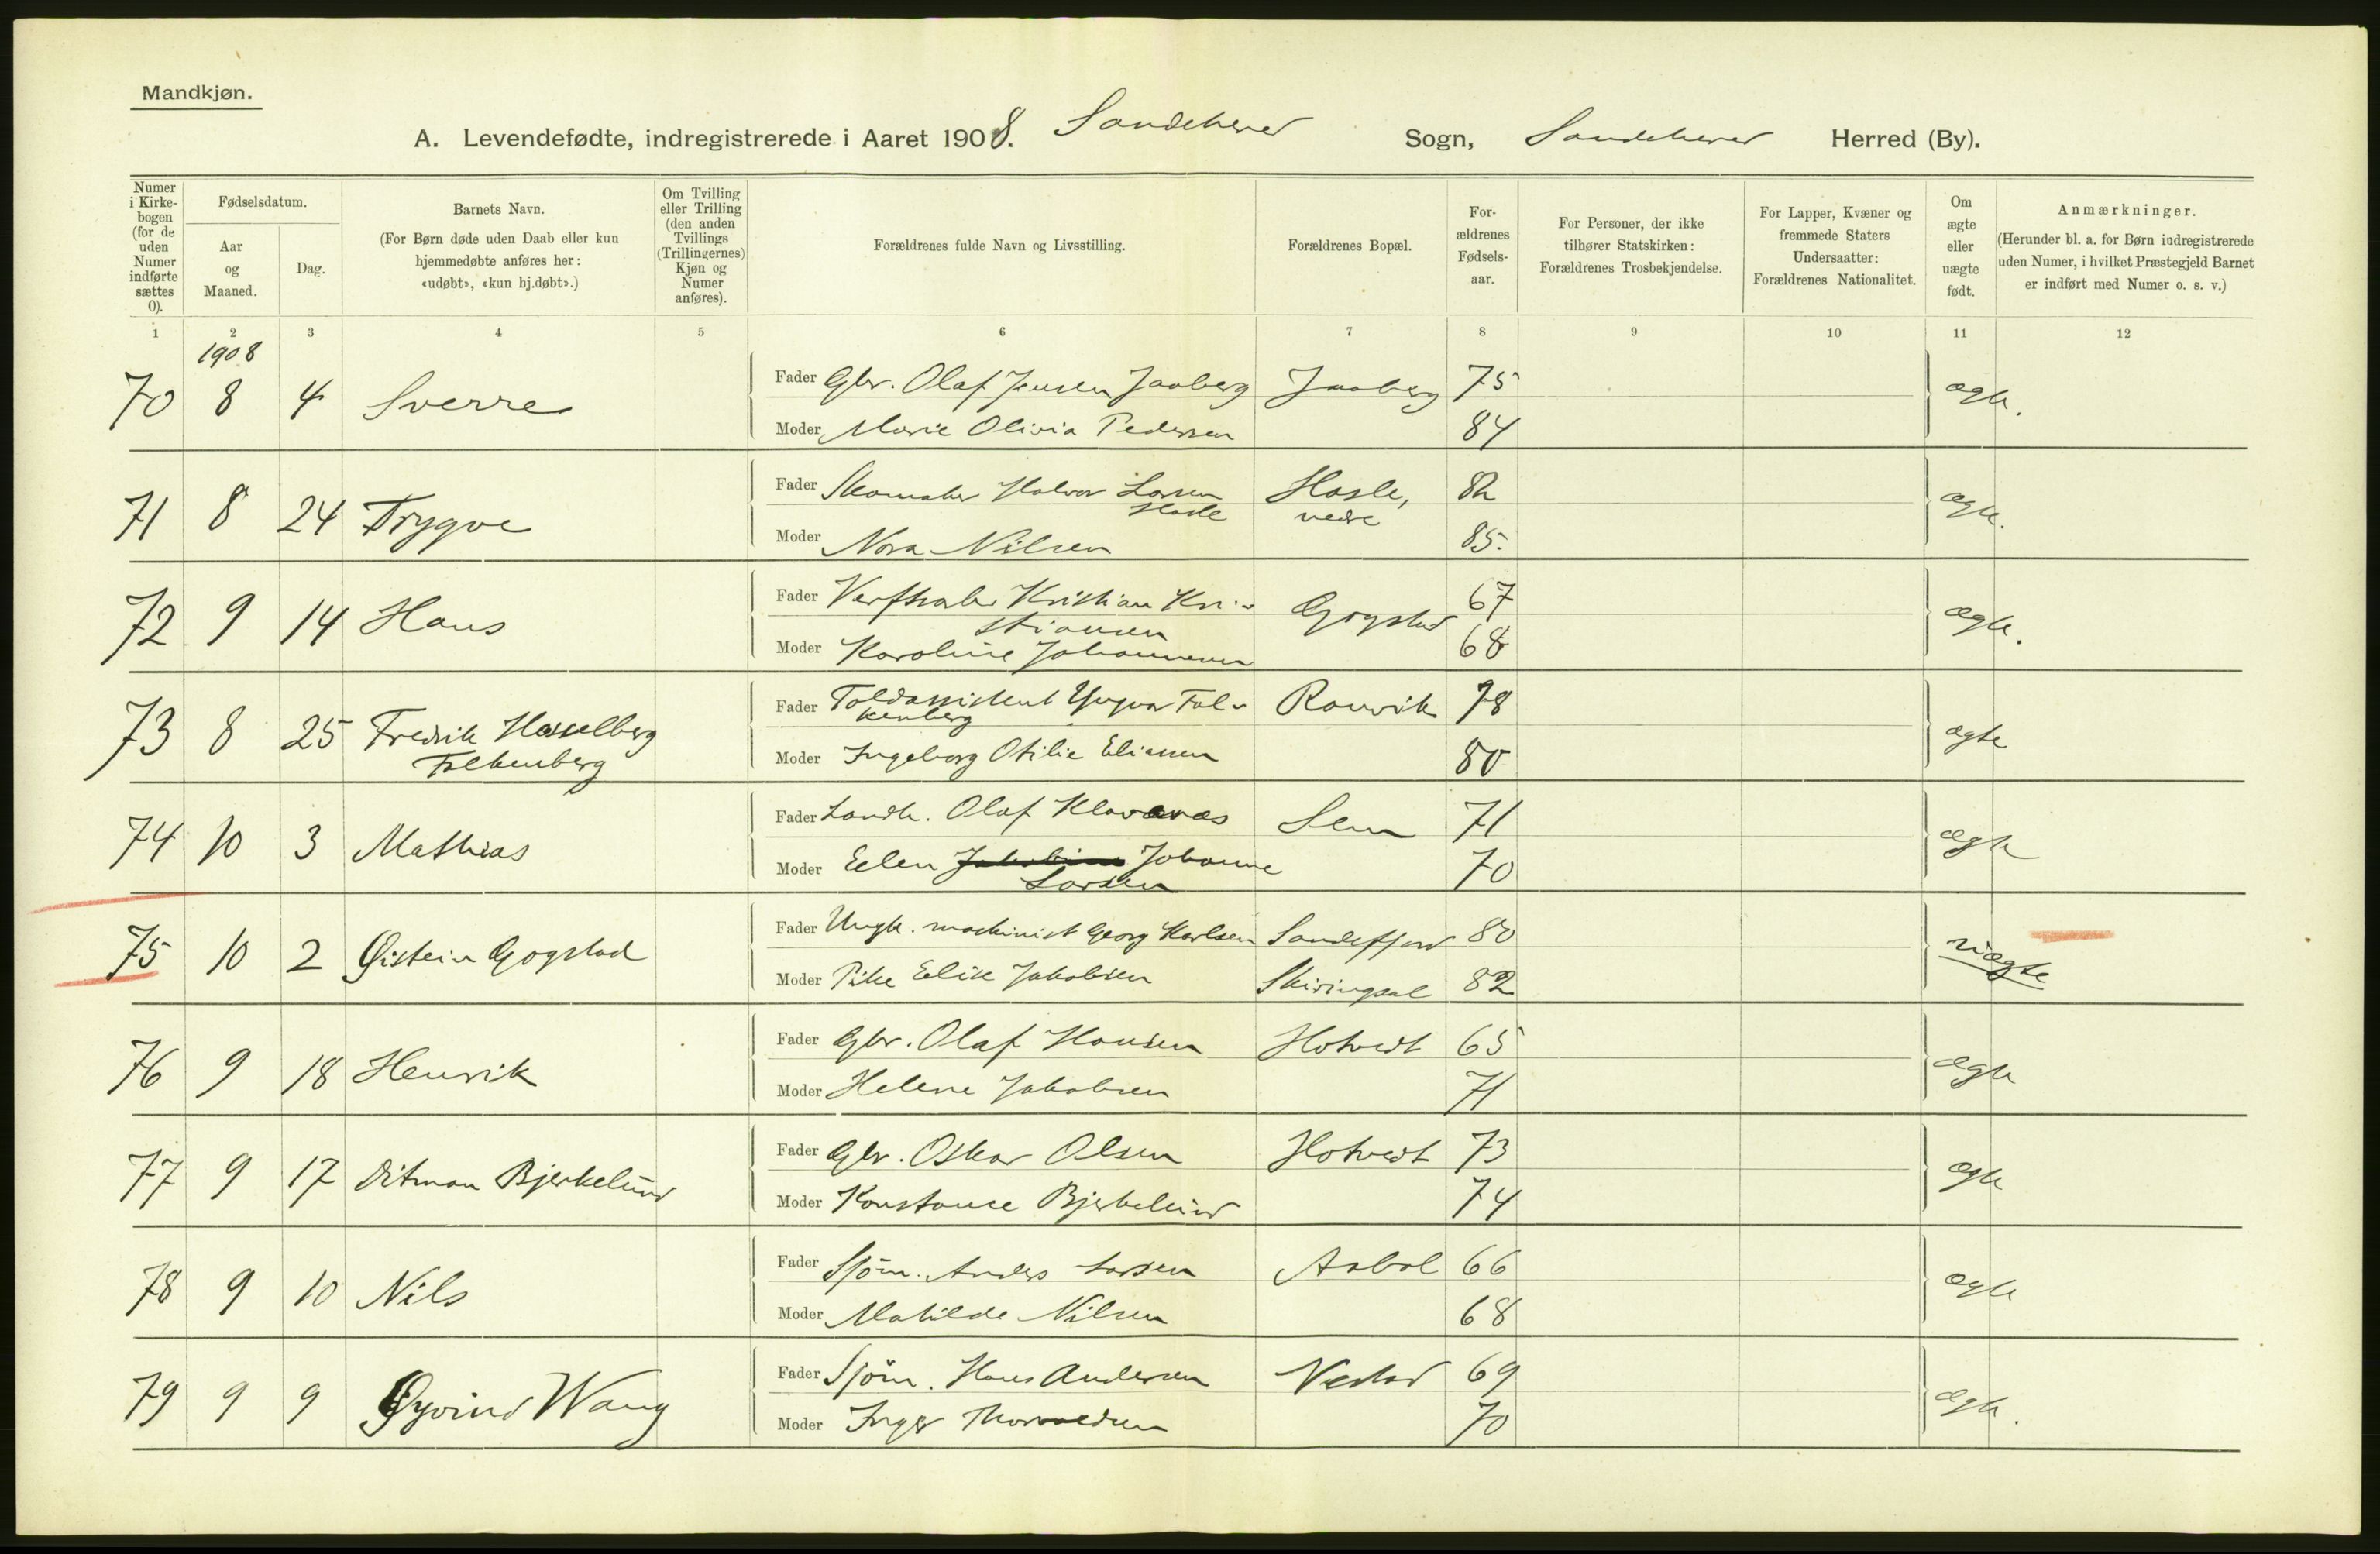 Mandkjøn.
A. Levendefødte, indregistrerede i Aaret 1908. Sandeherred Sogn, Sandeherred Herred (By).
Numer i Kirkebogen (for de uden Numer indførte sættes 0).
Fødselsdatum.
Aar og Maaned.
Dag.
Barnets Navn.
(For Børn døde uden Daab eller kun hjemmedøbte anføres her: «udøbt», «kun hj.døbt».)
Om Tvilling eller Trilling (den anden Tvillings (Trillingernes) Kjøn og Numer anføres).
Forældrenes fulde Navn og Livsstilling.
Forældrenes Bopæl.
Forældrenes Fødselsaar.
For Personer, der ikke tilhører Statskirken: Forældrenes Trosbekjendelse.
For Lapper, Kvæner og fremmede Staters Undersaatter: Forældrenes Nationalitet.
Om ægte eller uægte født.
Anmærkninger.
(Herunder bl. a. for Børn indregistrerede uden Numer, i hvilket Præstegjeld Barnet er indført med Numer o. s. v.)
1 2 3 4 5 6 7 8 9 10 11 12
1908
70 8 4 Sverre Fader Gbr. Olaf Jensen Jaaberg Jaaberg 75 ægte.
Moder Marie Olivia Pedersen 84
71 8 24 Trygve Fader Skomaker Halvor Larsen Hasle Hasle, nedre 82 ægte.
Moder Nora Nilsen 85.
72 9 14 Hans Fader Verftsarb. Kristian Kristiansen Gogstad 67 ægte.
Moder Karoline Johannesen 68
73 8 25 Fredrik Hasselberg Falkenberg Fader Toldassistent Yngvar Falkenberg Ranvik 78 ægte
Moder Ingeborg Otilie Eliassen 80
74 10 3 Mathias Fader Landh. Olaf Klavenæs Sem 71 ægte
Moder Elen Johanne Larsen 70
75 10 2 Øistein Gogstad Fader Ungk. maskinist Georg Karlsen Sandefjord 80 uægte
Moder Pike Elise Jakobsen Skiringsal 82
76 9 18 Henrik Fader Gbr. Olaf Hansen Hotvedt 65 ægte
Moder Helene Jakobsen 71
77 9 17 Ditman Bjerkelund Fader Gbr. Oskar Olsen Hotvedt 73 ægte
Moder Konstance Bjerkelund 74
78 9 10 Nils Fader Sjöm. Anders Larsen Aabol 66 ægte
Moder Mathilde Nilsen 68
79 9 9 Øyvind Wang Fader Sjöm. Hans Andersen 69 ægte.
Moder Inger Thorvaldsen 70